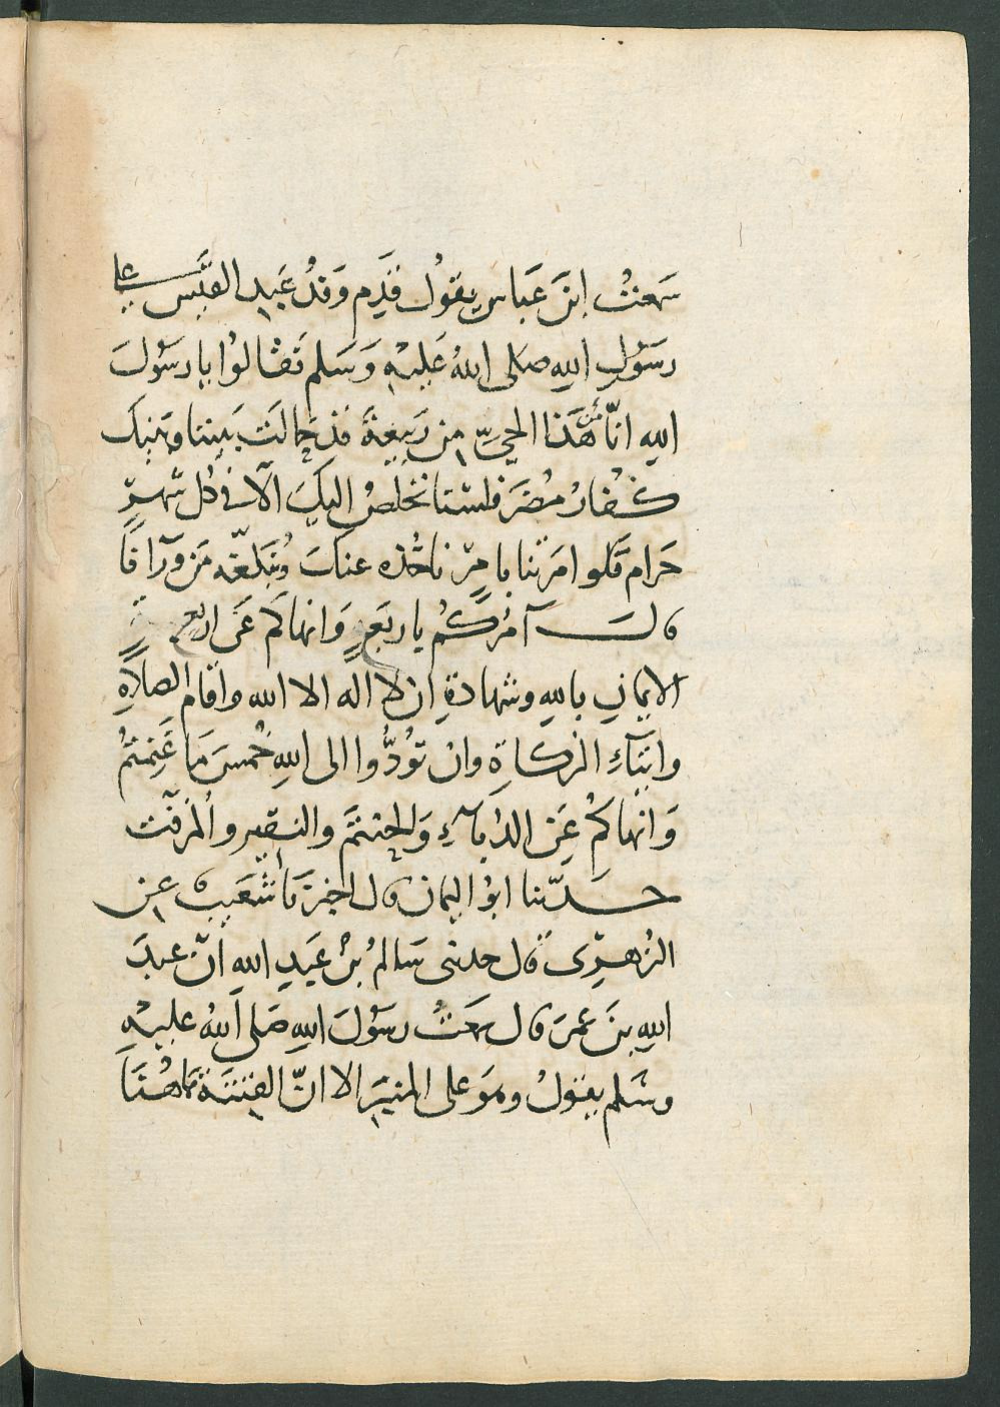 سَمِعْتُ ابْنَ عَبَّاسٍ يَقُولُ قَدِمَ وَفْدُ عَبْدِ القَيْسِ على
رَسُولِ اللهِ صَلى اللهُ عَلَيْهِ وَسَلم فَقَالُوا يا رَسُولَ
الله انّا من هَذَا الحيِّ مِن رَبِيعَةَ قَدْ حَالَتْ بَيننا وبَينَك
كُفّارُ مُضَرَ فلسْنا نَخْلُصُ اليكَ الّا في كل شَهرٍ
حَرام فَلَو امَرْتَنا بامرٍ ناخُذه عنك ونُبَلّغه مَن وَرَآنا
قال آمُرُكُم باربَعٍ وَانهاكم عَن اربع
الايمانِ بالله وشهادةِ ان لا اله الا الله واقام الصلاةِ
وايتَآءِ الزكاةِ وان تؤدُّوا الى اللهِ خُمسَ مَا غَنِمتُمْ
وَانهاكُم عَن الدُّبآءِ وَالحنتَمِ والنقيرِ والمُزَفّت
حدّثنا ابوُ اليمان قال اخبَرَنَا شُعَيبٌ عن
الزُهرِّى قال حدثنى سَالمُ بنُ عَبدِ اللهِ أنّ عبدَ
اللهِ بنَ عمرَ قال سمعتُ رسُولَ الله صَلى اللهُ عليهِ
وسَلم يقولُ وهوَ على المنبَر الا انّ الفِتنَةَ هاهُنَا